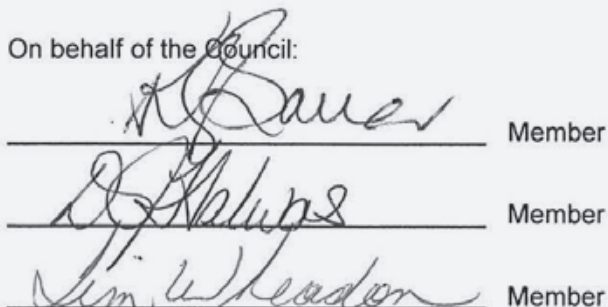 On behalf of the Council:
Member
Member
Jim Wheadon Member